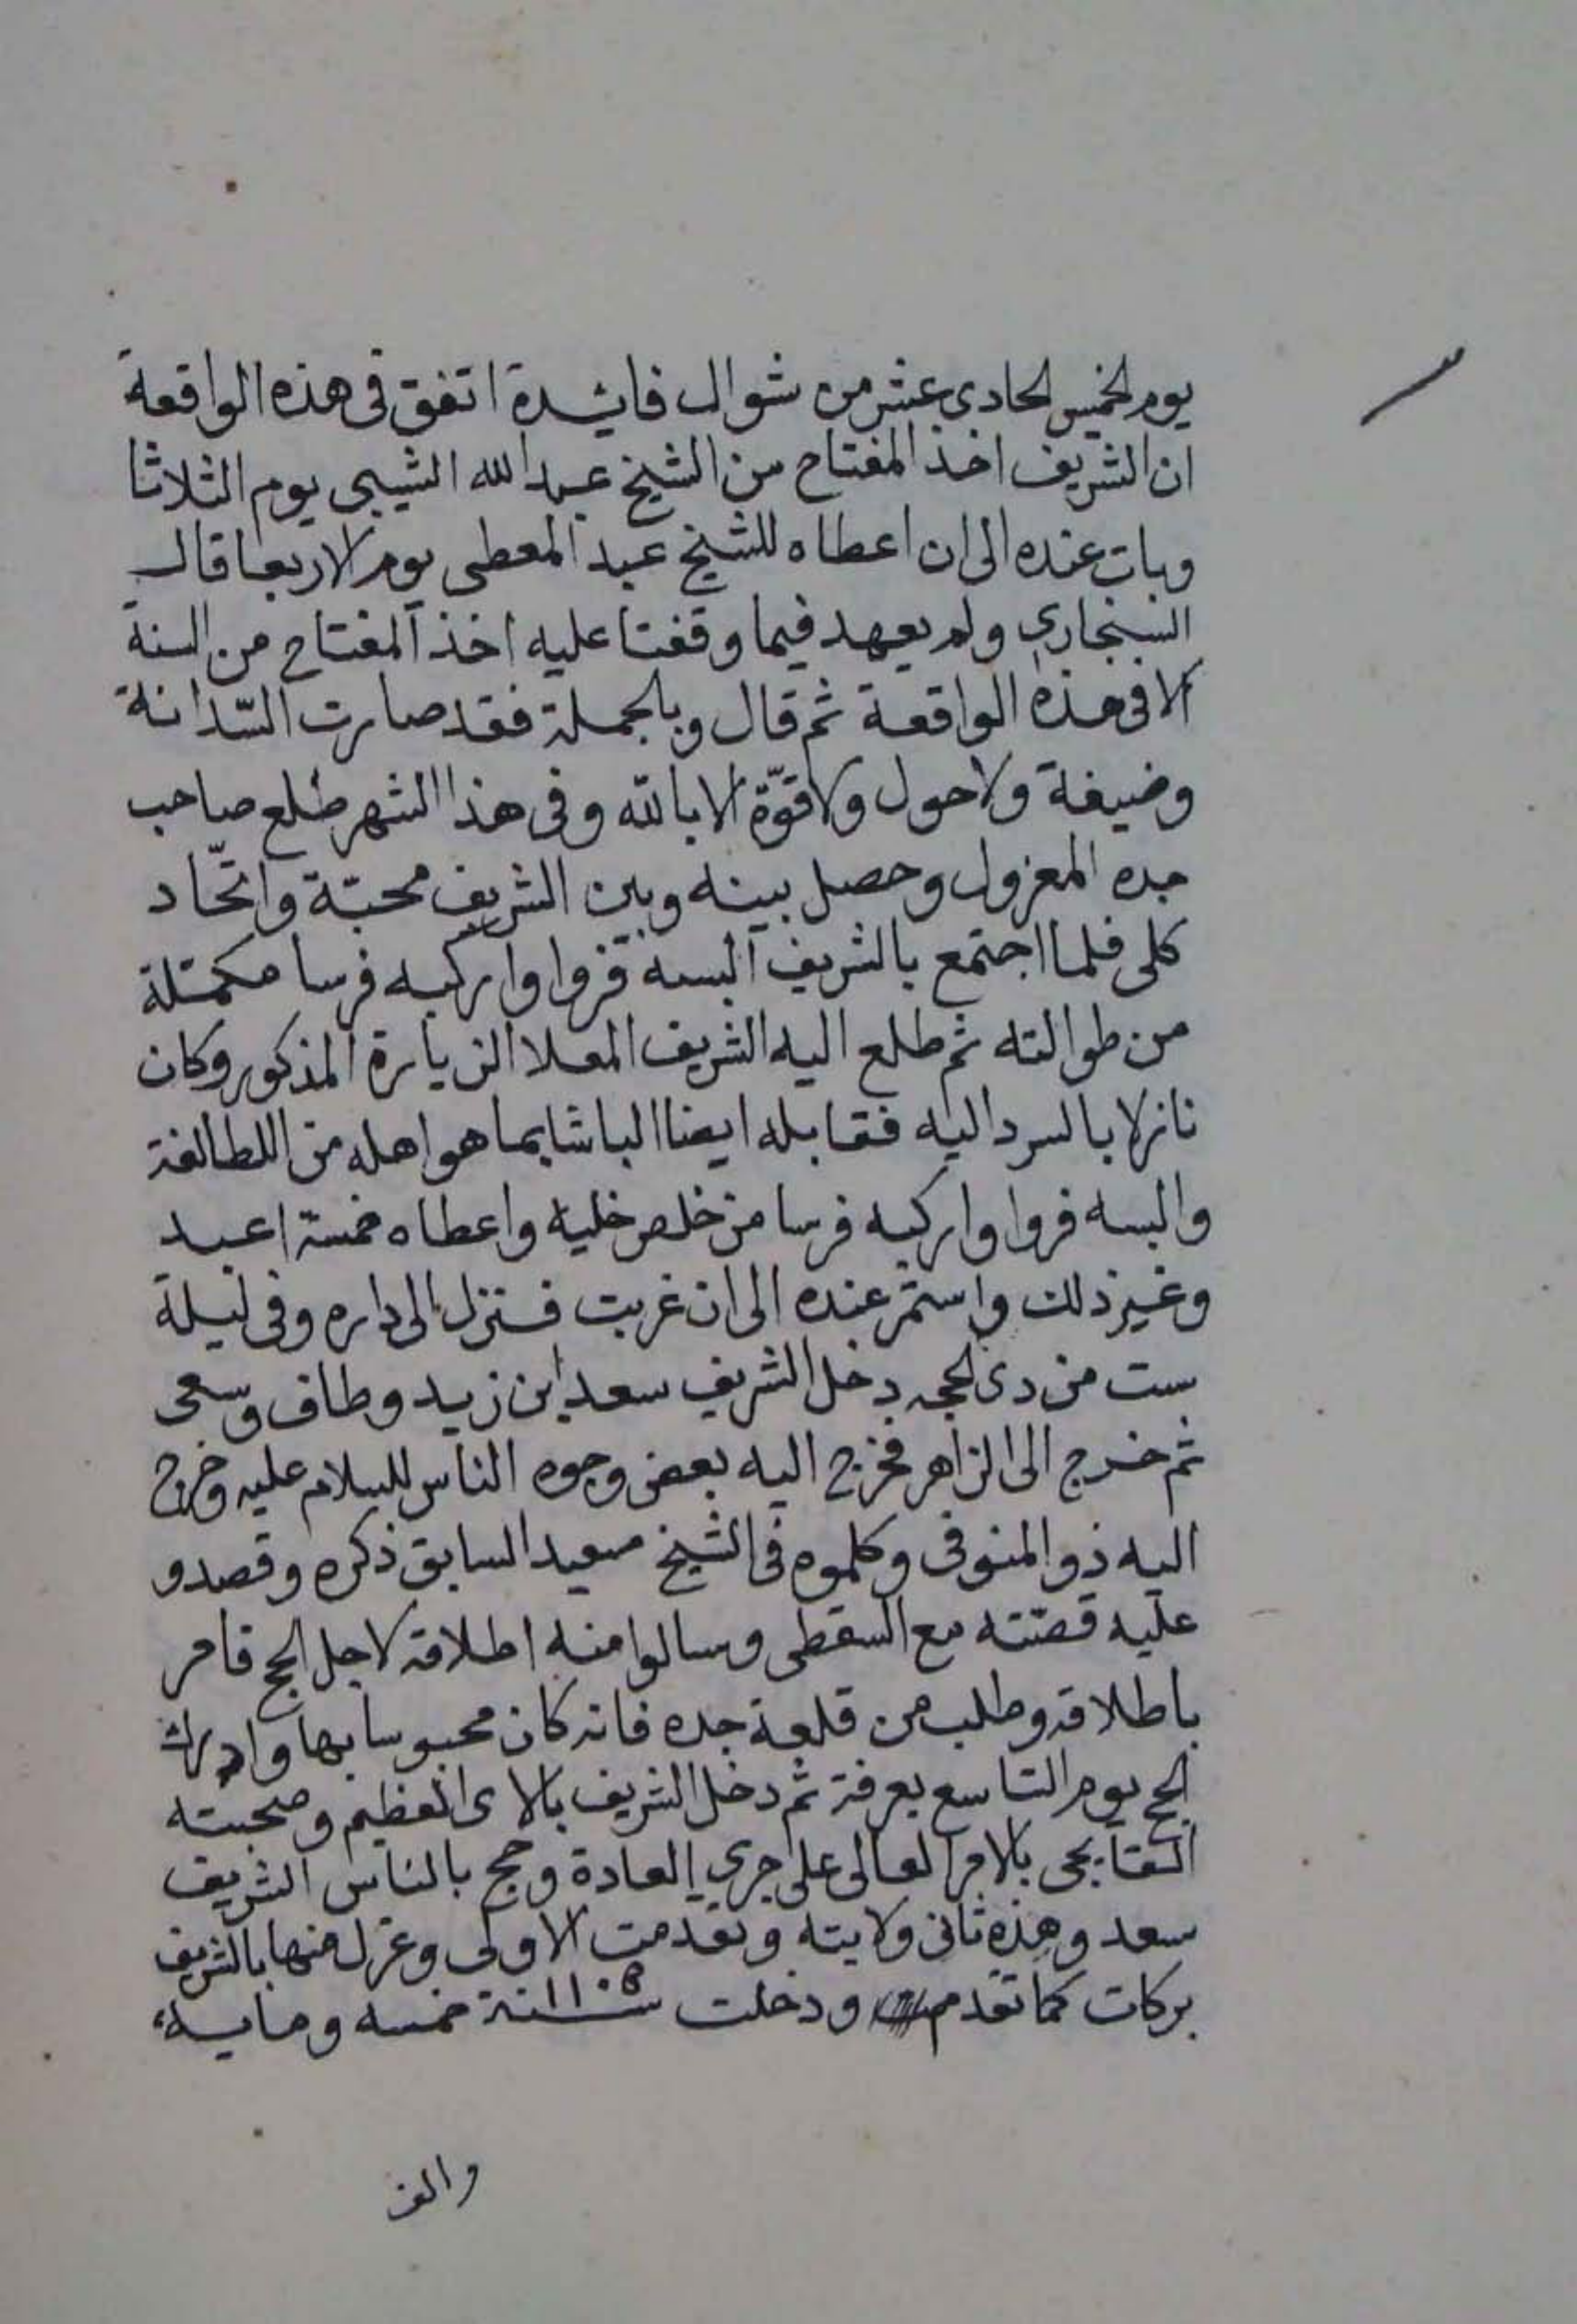 يوم الخميس الحادي عشر من شوال فائدة اتفق في هذه الواقعة
ان الشريف اخذ المفتاح من الشيخ عبد الله الشيبي يوم الثلاثا
وبات عنده الى ان اعطاه للشيخ عبد المعطى يوم الاربعا قال
السنجاري ولم يعهد فيما وقفنا عليه اخذ المفتاح من السنة
الا في هذه الواقعة ثم قال وبالجملة فقد صارت السّدانة
وضيفة ولا حول ولا قوّة الا بالله وفى هذا الشهر طلع صاحب
جده المعزول وحصل بينه وبين الشريف محبّة واتّحاد
كلى فلما اجتمع بالشريف البسه فروا واركبه فرسا مكمّلة
من طوالته ثم طلع اليه الشريف المعلا الزيارة المذكور وكان
نازلا بالسرد اليه فقابله ايضا الباشا بما هو اهله من اللطافة
والبسه فروا واركبه فرسا من خلص خليه واعطاه خمسة اعبد
وغير ذلك واستمر عنده الى ان غربت فنزل الى داره وفى ليلة
ست من دى الحجه دخل الشريف سعد ابن زيد وطاف وسعى
ثم خرج الى الزاهر فخرج اليه بعض وجوه الناس للسلام عليه وخرج
اليه ذو المنوفى وكلموه فى الشيخ سعيد السابق ذكره وقصدو
عليه قصّته مع السقطى وسالوا منه اطلاقه لاجل الحج فامر
باطلاقه وطلب من قلعة جده فانه كان محبوسا بها وادرك
الحج يوم التاسع بعرفة ثم دخل الشريف بالاى العظيم وصحبته
القفابجى بالامر العالى على جري العادة وحج بالناس الشريف
سعد وهذه ثانى ولايته وتقدمت الاولى وعزل منها بالشريف
بركات كما تقدم ودخلت سنة ١١٠٥ خمسه ومايه
والف